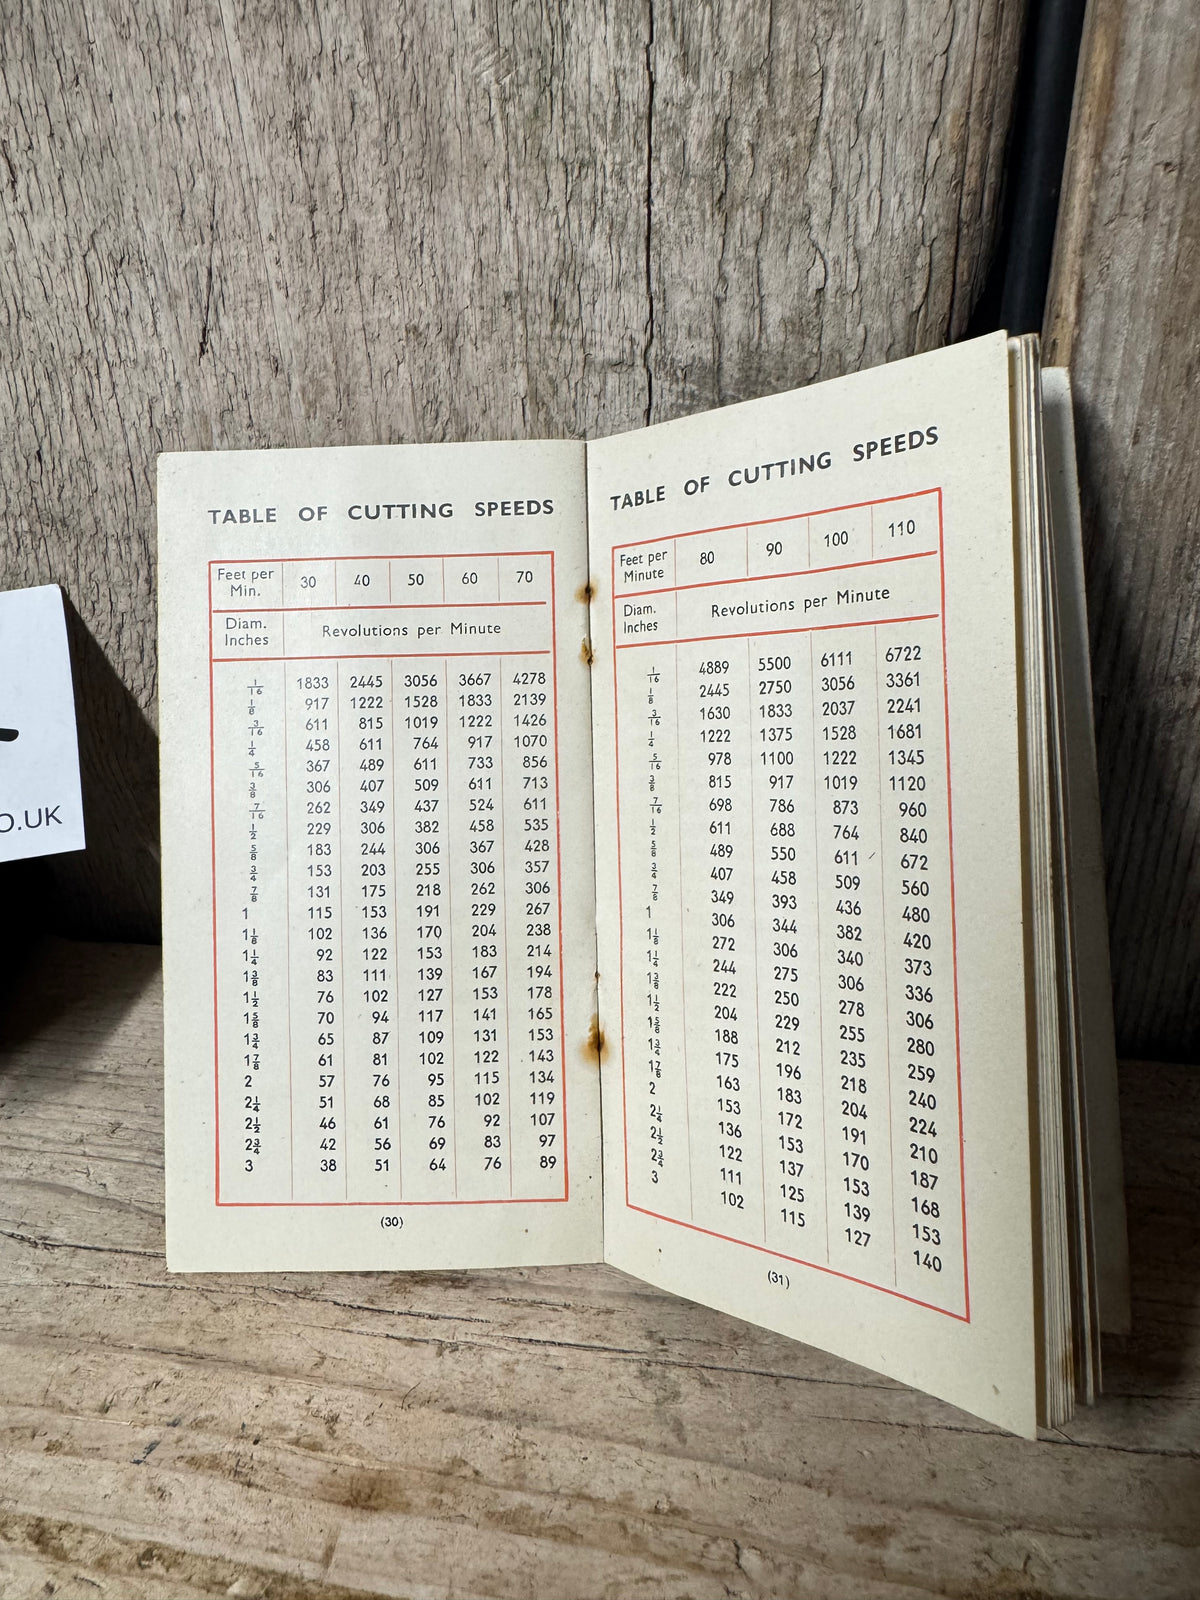 TABLE OF CUTTING SPEEDS
Feet per Min. 30 40 50 60 70
Diam. Inches Revolutions per Minute
1/16 1833 2445 3056 3667 4278
1/8 917 1222 1528 1833 2139
3/16 611 815 1019 1222 1426
1/4 458 611 764 917 1070
5/16 367 489 611 733 856
3/8 306 407 509 611 713
7/16 262 349 437 524 611
1/2 229 306 382 458 535
5/8 183 244 306 367 428
3/4 153 203 255 306 357
7/8 131 175 218 262 306
1 115 153 191 229 267
1 1/8 102 136 170 204 238
1 1/4 92 122 153 183 214
1 3/8 83 111 139 167 194
1 1/2 76 102 127 153 178
1 5/8 70 94 117 141 165
1 3/4 65 87 109 131 153
1 7/8 61 81 102 122 143
2 57 76 95 115 134
2 1/4 51 68 85 102 119
2 1/2 46 61 76 92 107
2 3/4 42 56 69 83 97
3 38 51 64 76 89
(30)
TABLE OF CUTTING SPEEDS
Feet per Minute 80 90 100 110
Diam. Inches Revolutions per Minute
1/16 4889 5500 6111 6722
1/8 2445 2750 3056 3361
3/16 1630 1833 2037 2241
1/4 1222 1375 1528 1681
5/16 978 1100 1222 1345
3/8 815 917 1019 1120
7/16 698 786 873 960
1/2 611 688 764 840
5/8 489 550 611 672
3/4 407 458 509 560
7/8 349 393 436 480
1 306 344 382 420
1 1/8 272 306 340 373
1 1/4 244 275 306 336
1 3/8 222 250 278 306
1 1/2 204 229 255 280
1 5/8 188 212 235 259
1 3/4 175 196 218 240
1 7/8 163 183 204 224
2 153 172 191 210
2 1/4 136 153 170 187
2 1/2 122 137 153 168
2 3/4 111 125 139 153
3 102 115 127 140
(31)
O.UK